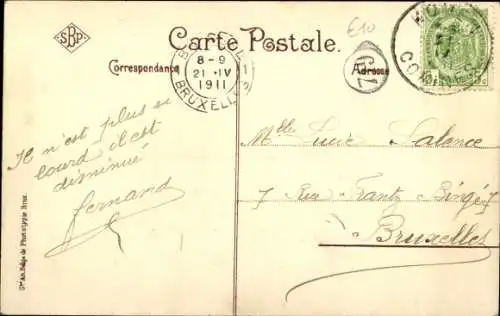 SBP
Carte Postale.
E10
Correspondance
Adresse
BRUXELLES
8-9
21 IV
1911
Il n'est plus si
lourd il est
diminué
Fernand
Melle Lucie Valence
7 Rue Frantz Bingé 7
Bruxelles
Ste An. Belge de Phototypie Brux.